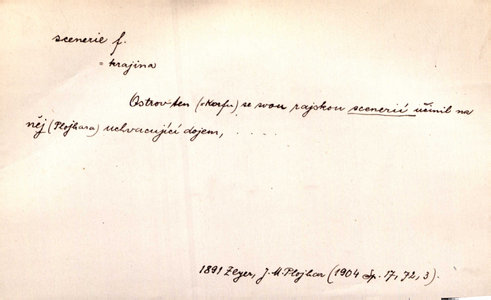 scenerie f.
= krajina
Ostrov ten (= Korfu) se svou rajskou scenerií učinil na
něj (Plojhara) uchvacující dojem, . . . .
1891 Zeyer, J. M. Plojhar (1904 Sp. 17, 72, 3).